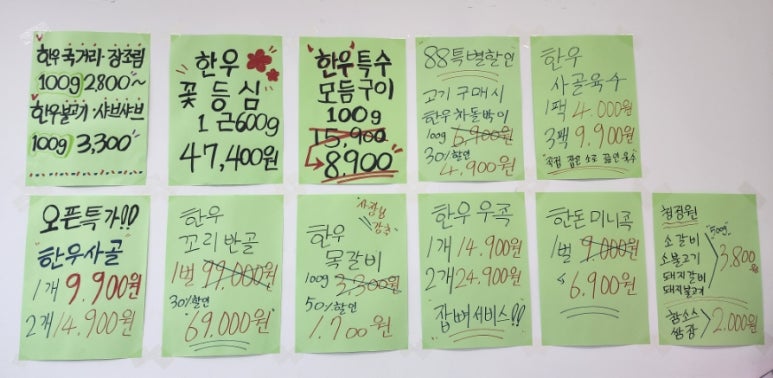 한우국거리·장조림
100g 2,800~
한우불고기·샤브샤브
100g 3,300
한우
꽃등심
1근 600g
47,400원
한우특수
모듬구이
100g
15,900
8,900
88특별할인
고기 구매시
한우차돌박이
100g 6,900원
30%할인
4,900원
한우
사골육수
1팩 4,000원
3팩 9,900원
오픈특가!!
"한우사골"
1개 9,900원
2개 14,900원
한우
꼬리반골
1벌 99,000원
30%할인
69,000원
사장님
강추
한우
목갈비
100g 3,300원
50%할인
1,700원
한우 우족
1개 14,900원
2개 24,900원
잡뼈서비스!!
한돈미니족
1벌 9,000원
6,900원
청정원
소갈비
소불고기
돼지갈비
돼지불고기
500g
3,800원
쌈장
2,000원